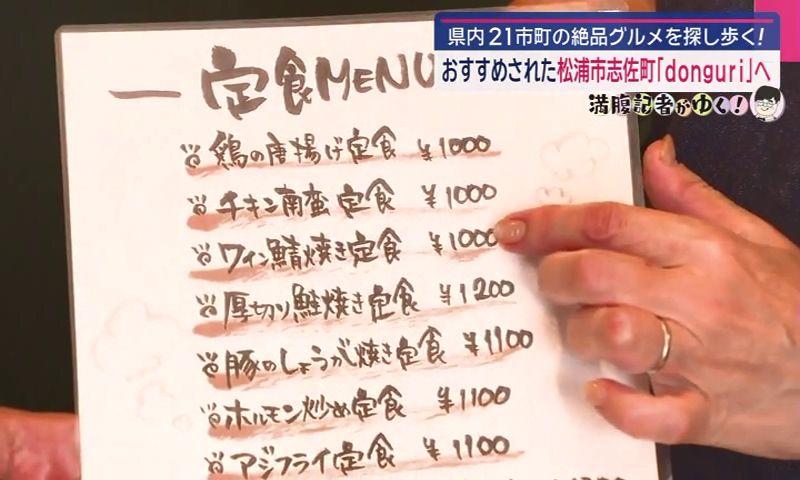 県内21市町の絶品グルメを探し歩く!
おすすめされた松浦市志佐町「donguri」へ
満腹記者がゆく!
定食MENU
鶏の唐揚げ定食 ¥1000
チキン南蛮定食 ¥1000
ワイン鯖焼き定食 ¥1000
厚切り鮭焼き定食 ¥1200
豚のしょうが焼き定食 ¥1100
ホルモン炒め定食 ¥1100
アジフライ定食 ¥1100